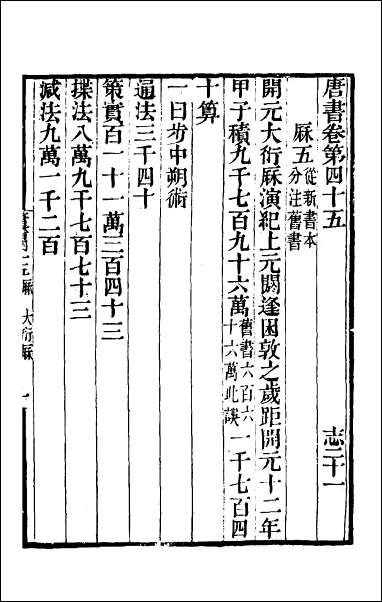 唐書卷第四十五　志二十一
厤五從新書本分注舊書
開元大衍厤演紀上元閼逢困敦之歲距開元十二年
甲子積九千七百九十六萬舊書六百六十六萬此誤一千七百四
十算
一曰步中朔術
通法三千四十
策實百一十一萬三百四十三
揲法八萬九千七百七十三
減法九萬一千二百
五厤　大衍厤　一